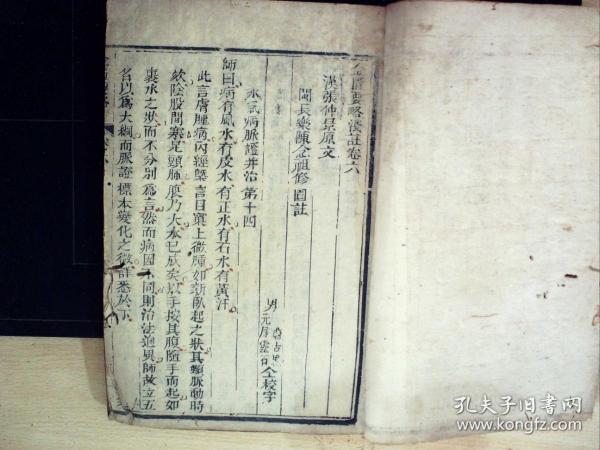 金匱要略淺註卷六
漢張仲景原文
閩長樂陳念祖修園註
男元犀靈石仝校字
水氣病脈證并治第十四
師曰病有風水有皮水有正水有石水有黃汗
此言膚腫病內經槩言目窠上微腫如新臥起之狀其頸脈動時
欬陰股間寒足頸腫腹乃大水已成矣以手按其腹隨手而起如
裹水之狀而不分別為言然而病因不同則治法迥異師故立五
名以為大綱而脈證標本變化之微詳悉於下
孔夫子旧书网
www.kongfz.com